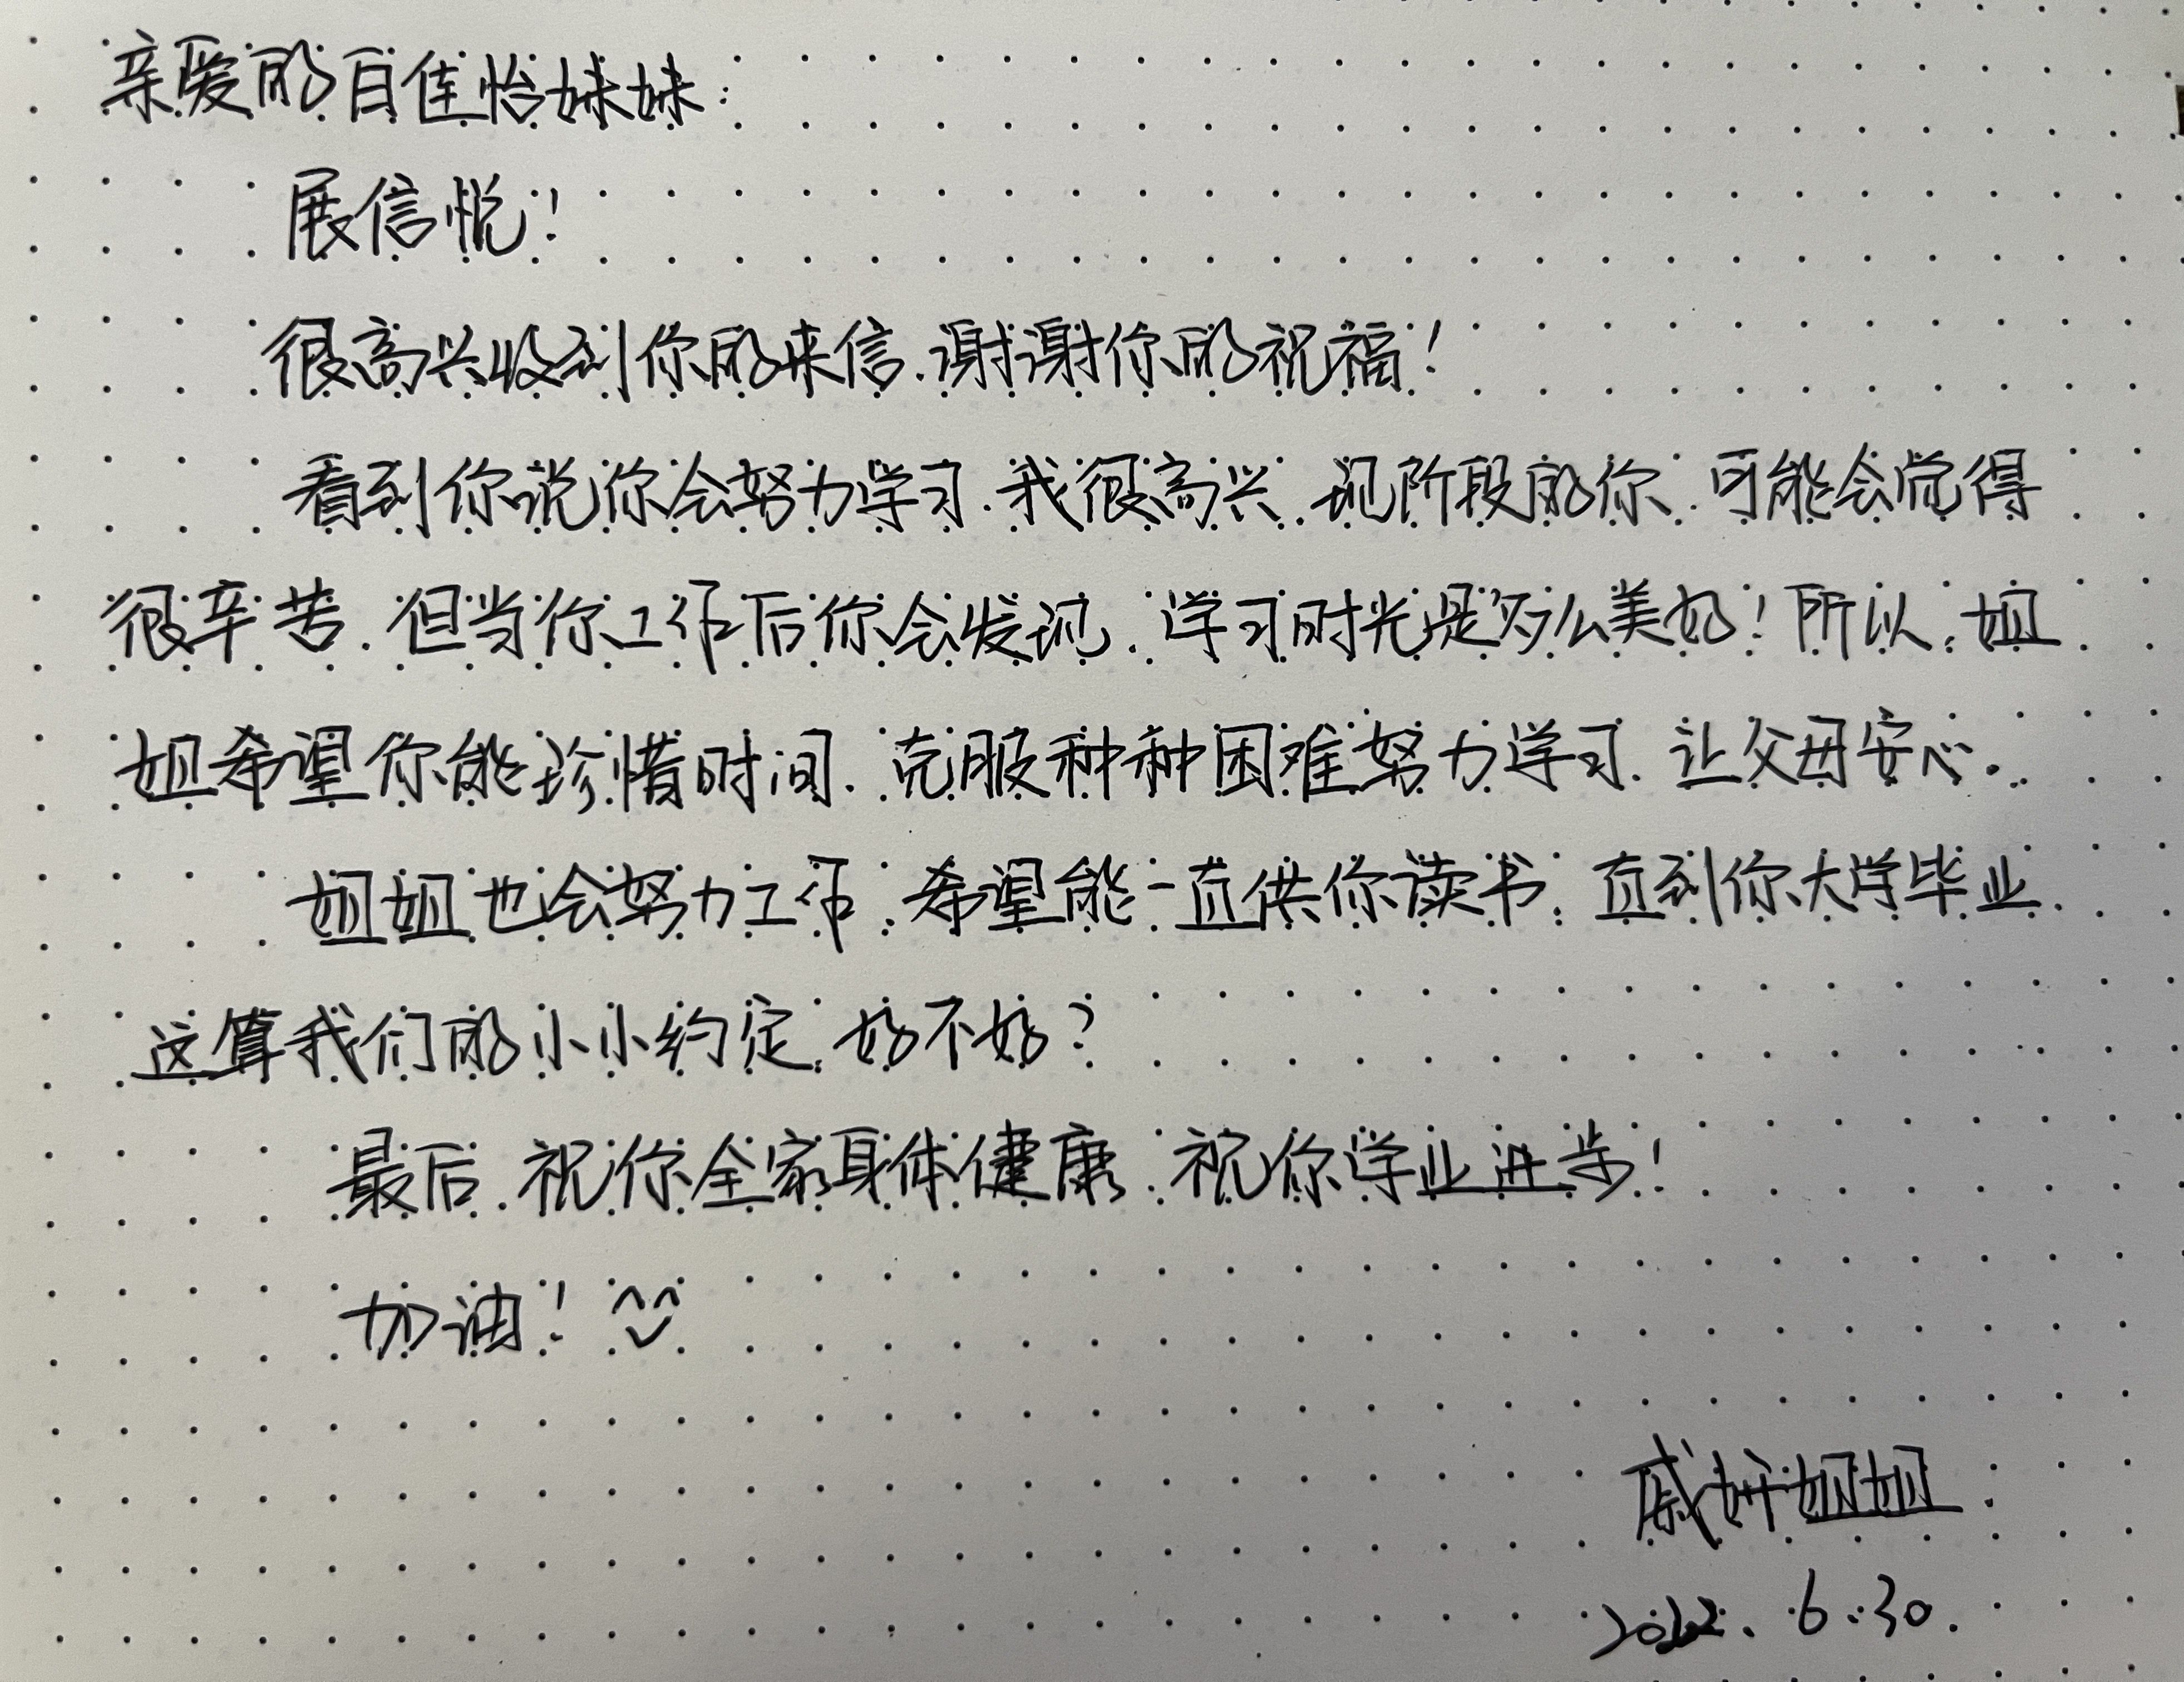 亲爱的白佳怡妹妹:
展信悦!
很高兴收到你的来信.谢谢你的祝福!
看到你说你会努力学习.我很高兴.现阶段的你.可能会觉得
很辛苦.但当你工作后你会发现.学习时光是多么美好!所以.姐
姐希望你能珍惜时间.克服种种困难努力学习.让父母安心.
姐姐也会努力工作.希望能一直供你读书.直到你大学毕业.
这算我们的小小约定.好不好?
最后.祝你全家身体健康.祝你学业进步!
加油!
戚妤姐姐
2022.6.30.